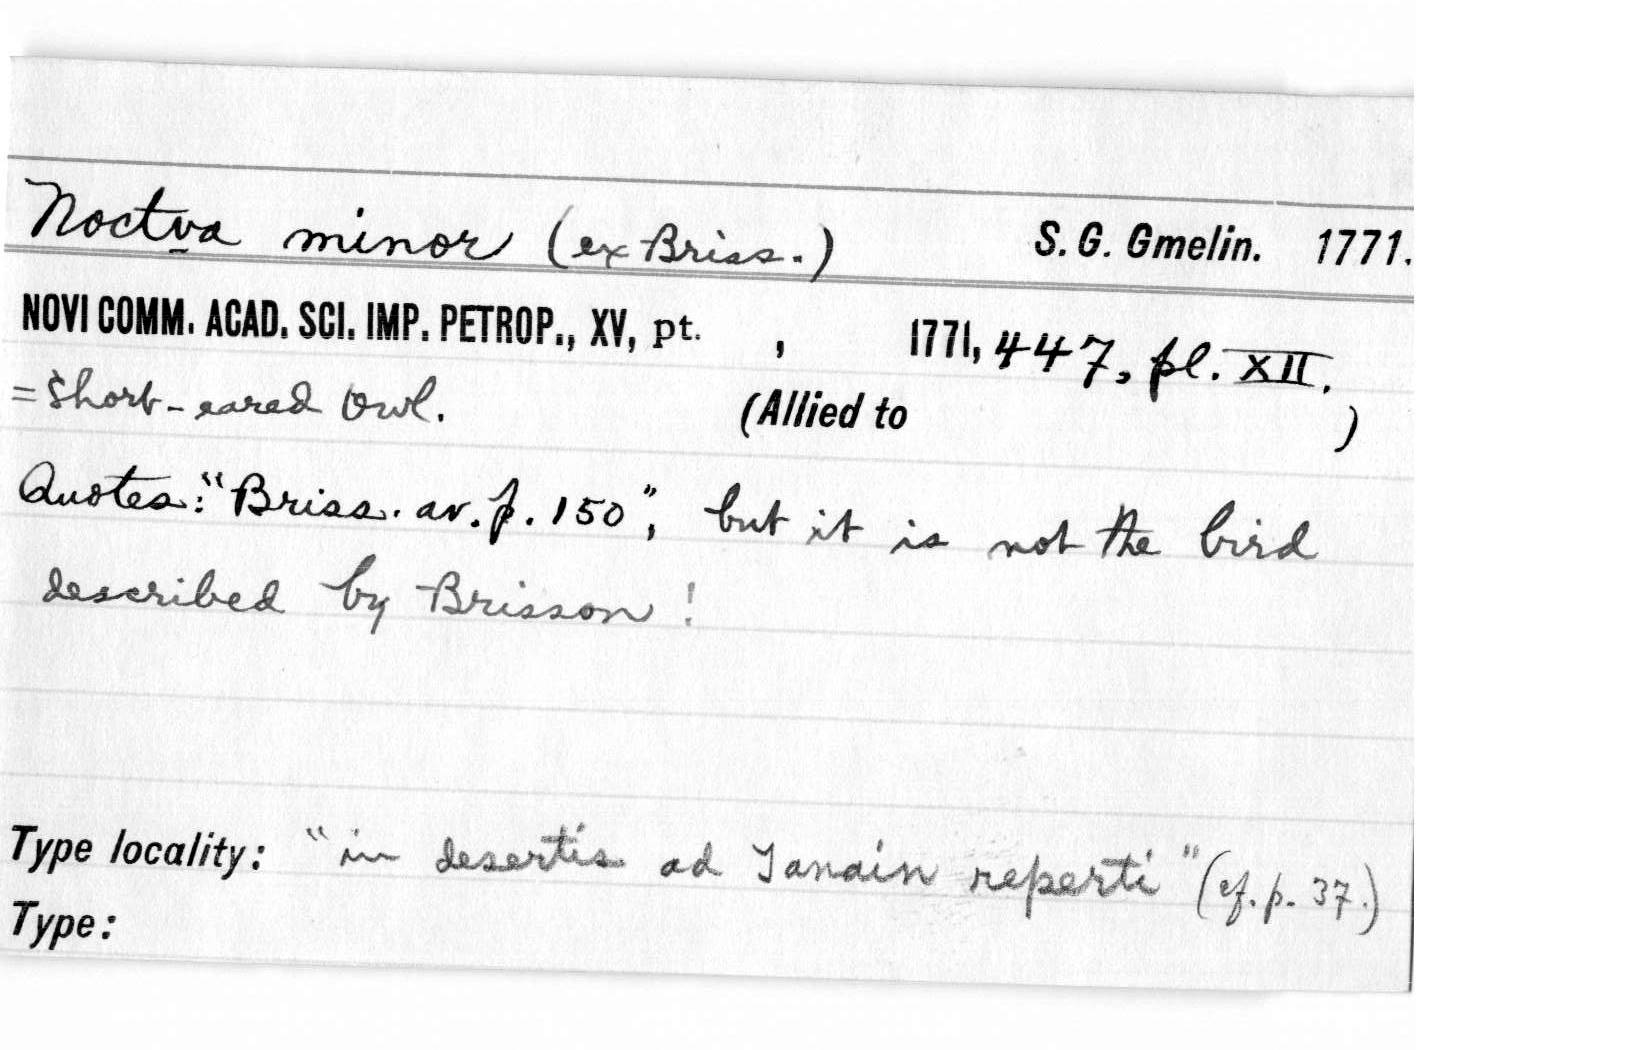 Noctva minor (ex Briss.) S. G. Gmelin. 1771.
NOVI COMM. ACAD. SCI. IMP. PETROP., XV, pt. , 1771, 447, pl. XII.
=Short-eared Owl. (Allied to )
Quotes: "Briss. av. p. 150", but it is not the bird
described by Brisson!
Type locality: "in desertis ad Tanain reperti" (cf. p. 37.)
Type: